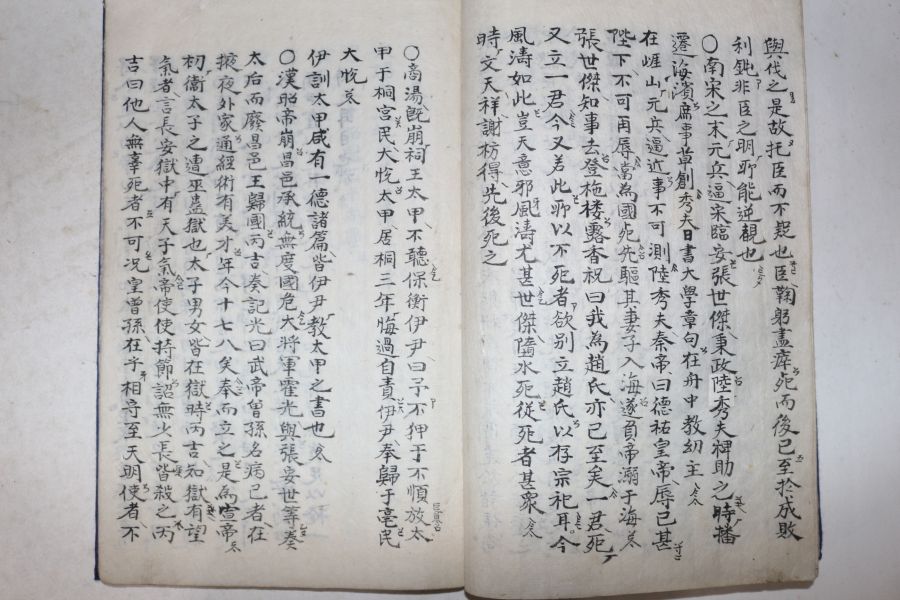 與伐之是故托臣而不疑也臣鞠躬盡瘁死而後已至於成敗
利鈍非臣之明所能逆覩也
〇南宋之末元兵逼宋臨安張世傑秉政陸秀夫裨助之時播
遷海濱庶事草創秀夫日書大學章句在舟中教幼主
在崖山元兵逼近事不可測陸秀夫奏帝曰德祐皇帝辱已甚
陛下不可再辱當為國死先驅其妻子入海遂負帝溺于海
張世傑知事去登柁楼露香祝曰我為趙氏亦已至矣一君死
又立一君今又若此所以不死者欲别立趙氏以存宗祀耳今
風濤如此豈天意邪風濤尤甚世傑墮水死從死者甚衆
時文天祥謝枋得先後死之
〇商湯旣崩祠王太甲不聽保衡伊尹曰予不狎于不順放太
甲于桐宮民大悅太甲居桐三年悔過自責伊尹奉歸于亳民
大悅
伊訓太甲咸有一德諸篇皆伊尹教太甲之書也
〇漢昭帝崩昌邑承統無度國危大將軍霍光與張安世等奏
太后而廢昌邑王歸國丙吉奏記光曰武帝曾孫名病已者在
掖夜外家通經術有美才年今十七八矣奉而立之是為宣帝
初衛太子之遭巫蠱獄也太子男女皆在獄時丙吉知獄有望
氣者言長安獄中有天子氣帝使使持節詔無少長皆殺之丙
吉曰他人無辜死者不可况皇曾孫在乎相守至天明使者不